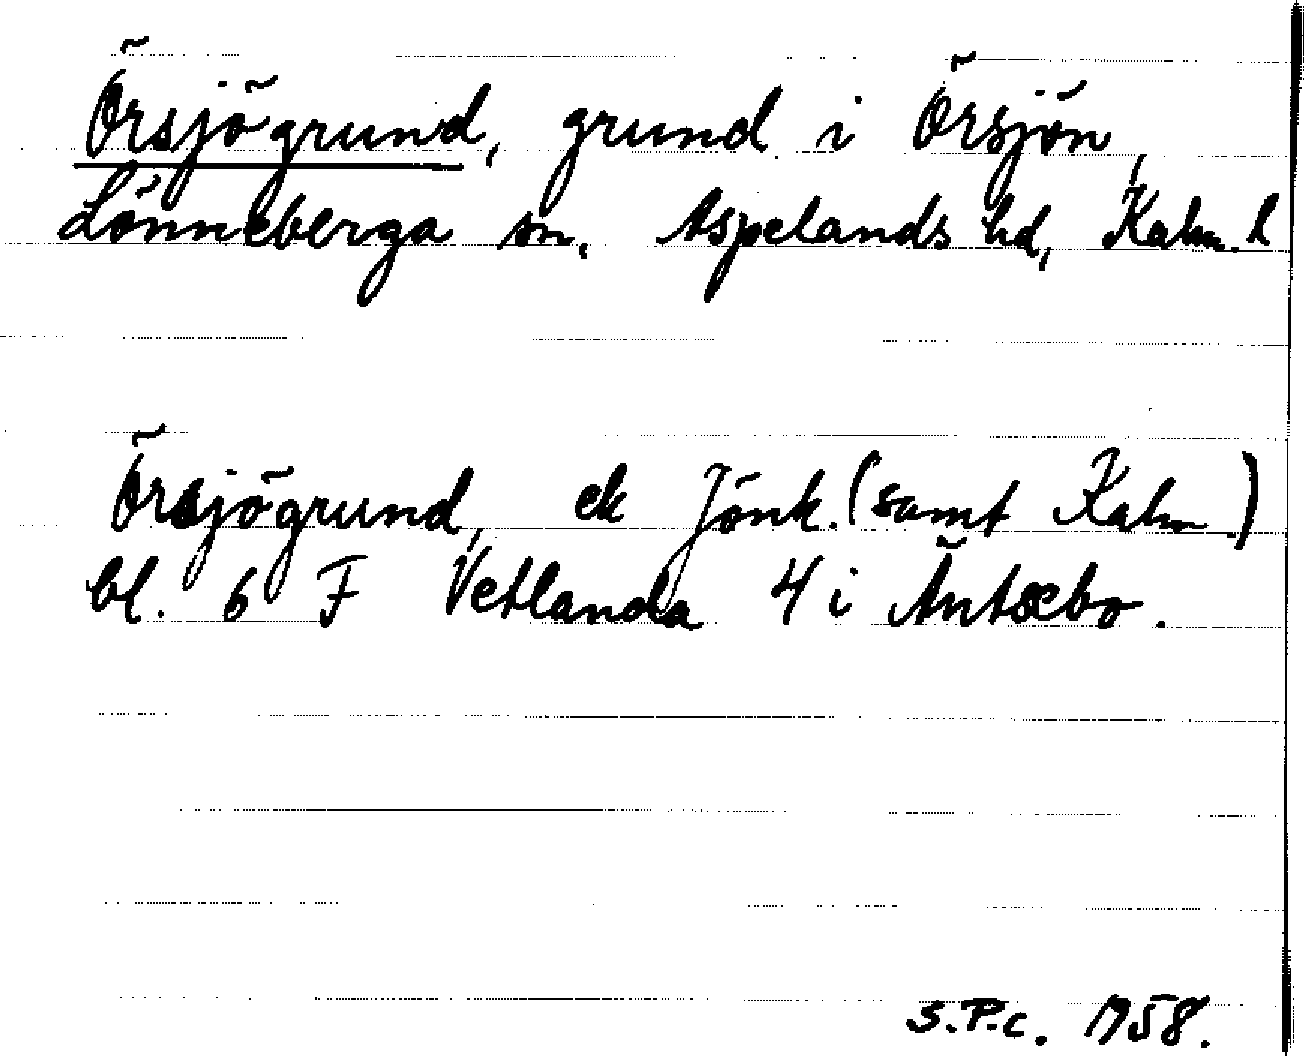 Örsjögrund, grund i Örsjön,
Lönneberga sn, Aspelands hd, Kalm. l
Örsjögrund, ek Jönk. (samt Kalm.)
bl. 6 F Vetlanda 4 i Äntsebo.
S.P.C. 1958.